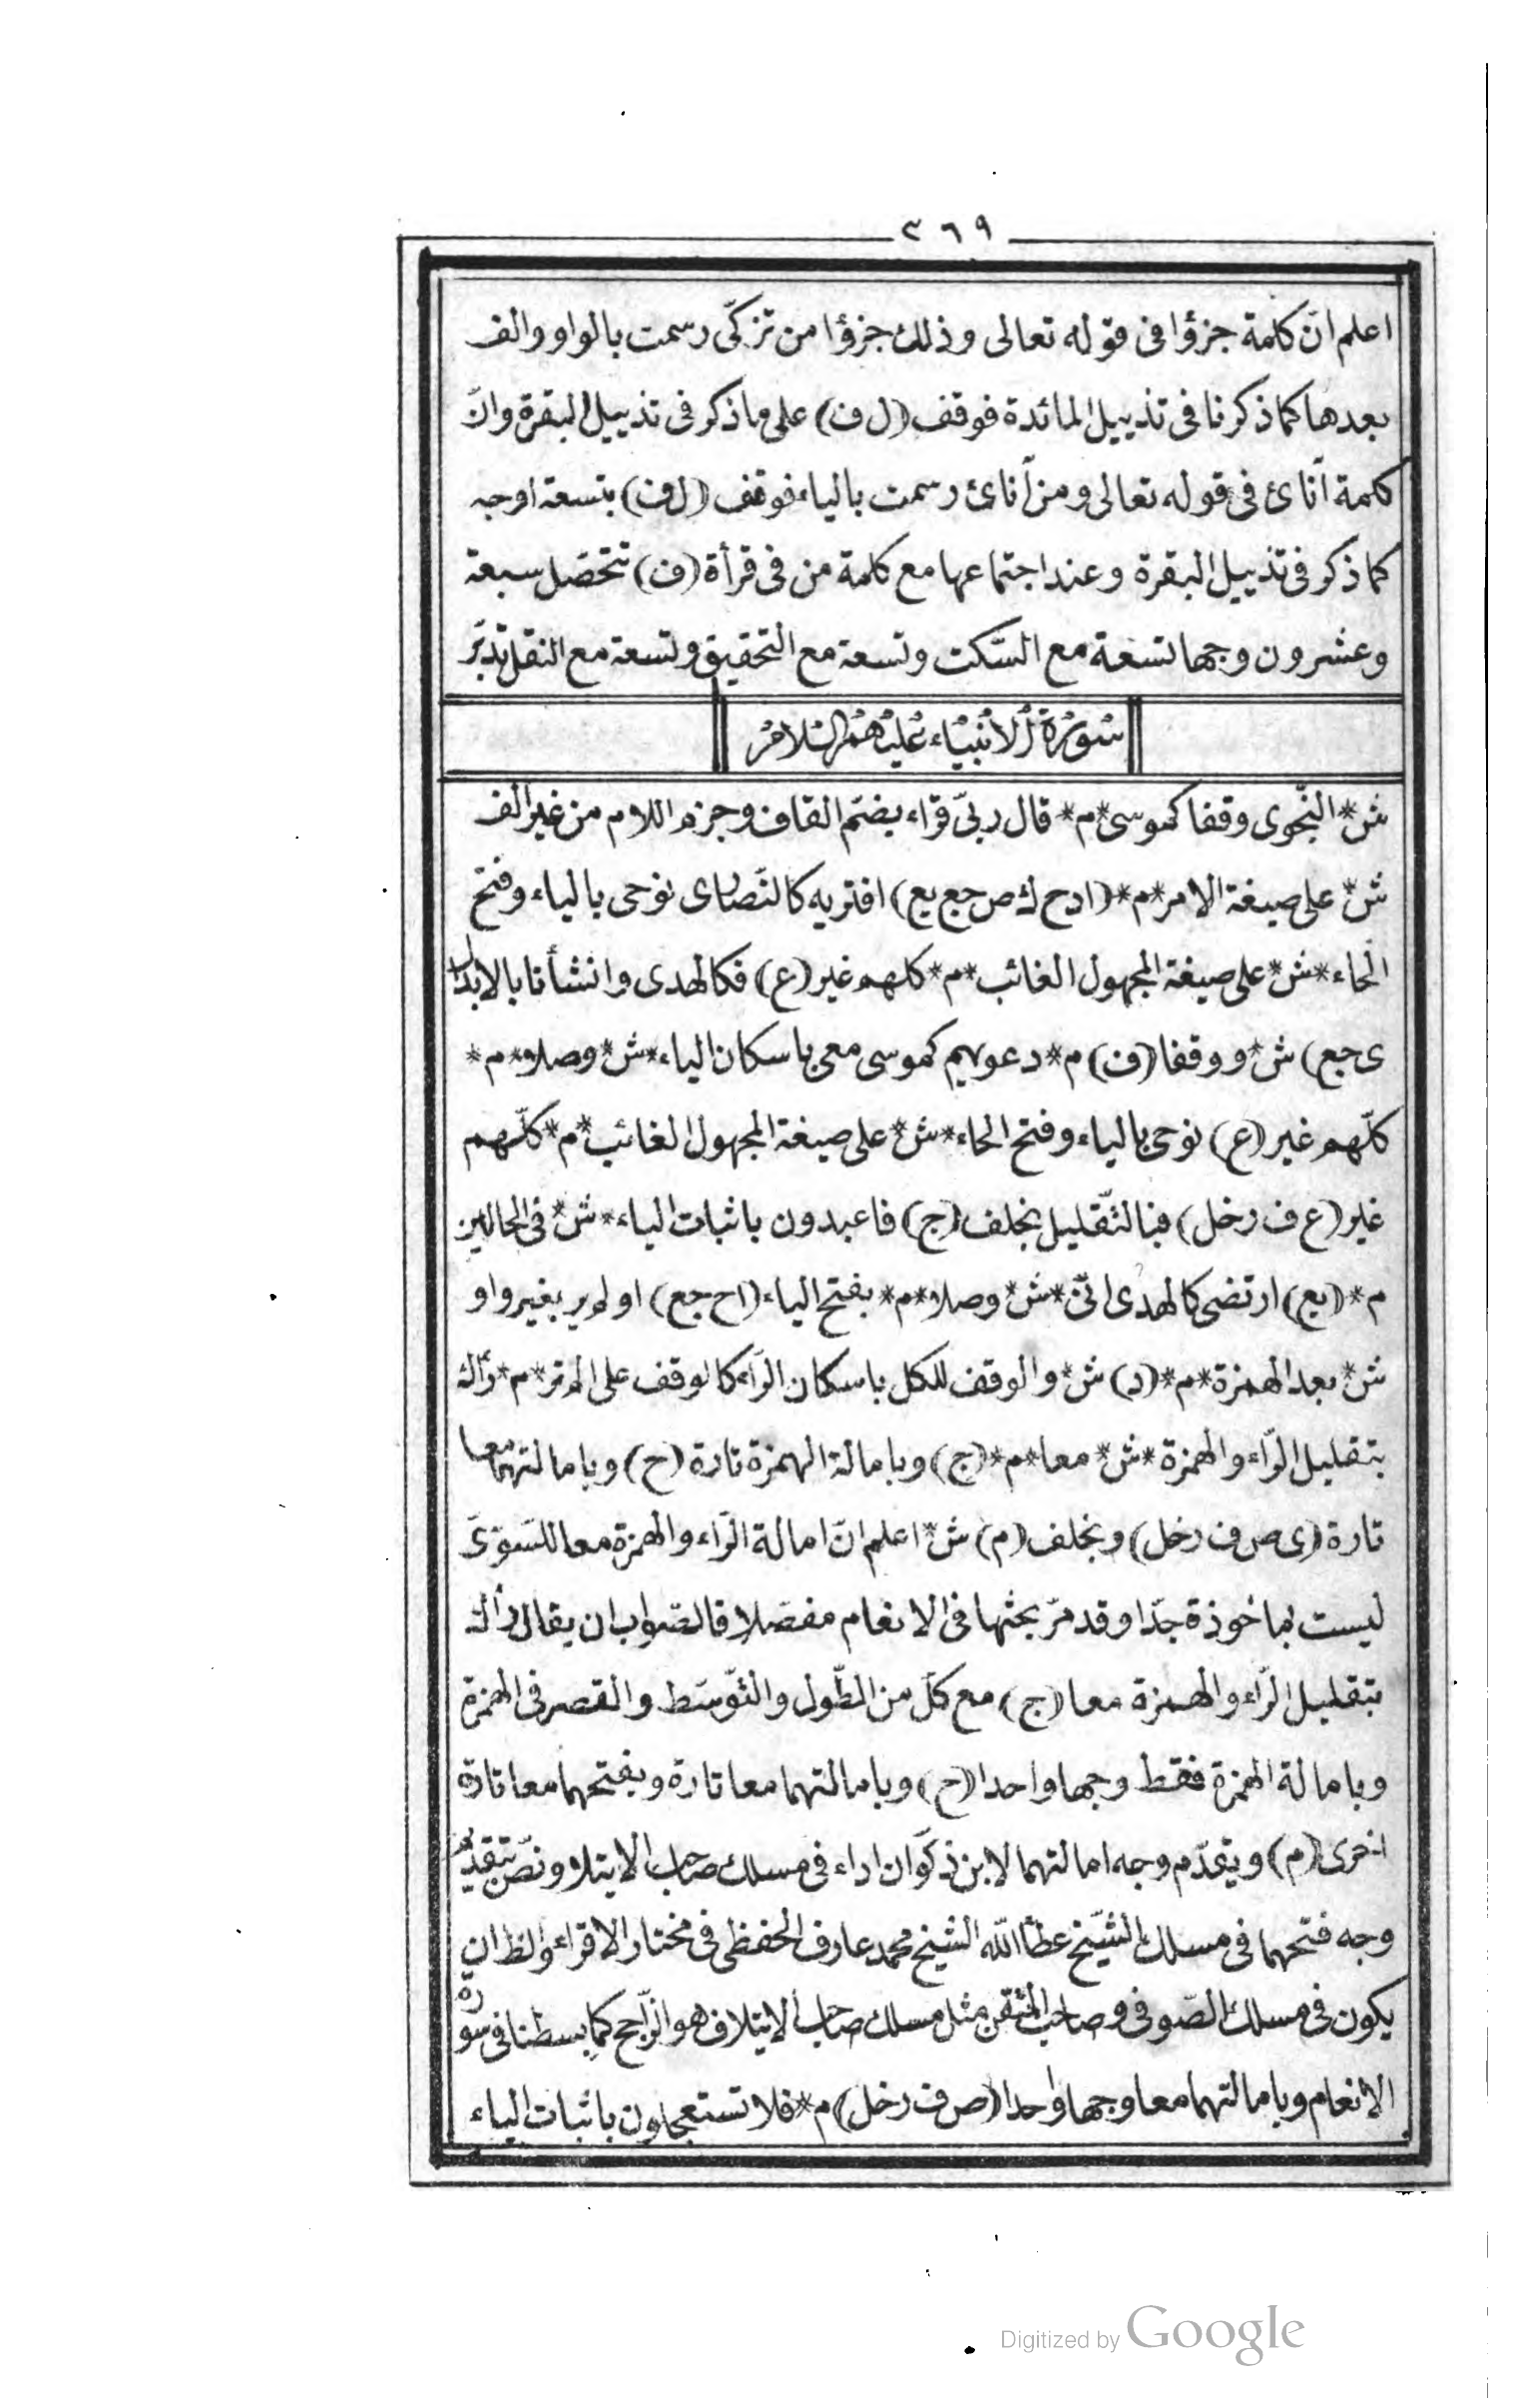 ٢٦٩
اعلم انّ كلمة جزؤا فى قوله تعالى وذلك جزؤا من تزكّى رسمت بالواو والف
بعدها كما ذكرنا فى تذييل المائدة فوقف (ل ف) على ما ذكر فى تذييل البقرة وانّ
كلمة اٰنائ فى قوله تعالى ومن اٰنائ رسمت بالياء فوقف (ل ف) بتسعة اوجه
كما ذكر فى تذييل البقرة وعند اجتماعها مع كلمة من فى قرأة (ف) تتحصّل سبعة
وعشرون وجها تسعة مع السّكت وتسعة مع التحقيق وتسعة مع النقل تدبّر
سُوْرَةُ الْاَنْبِيَاء عَلَيْهِمُ السَّلَامُ
ش* النّجوى وقفا كموسى *م* قال ربّى قراء بضمّ القاف وجزم اللام من غير الف
ش* على صيغة الامر *م* (ا د ح ك ص جع يع) افتريه كالنّصارى نوحى بالياء وفتح
الحاء *ش* على صيغة المجهول الغائب *م* كلهم غير (ع) فكالهدى وانشأنا بالابدال
ى جع) ش* ووقفا (ف) م* دعويهم كموسى معى باسكان الياء *ش* وصلا *م*
كلّهم غير (ع) نوحى بالياء وفتح الحاء *ش* على صيغة المجهول الغائب *م* كلّهم
غير (ع ف ر خل) فبالتّقليل بخلف (ج) فاعبدون باثبات الياء *ش* فى الحالين
م* (يع) ارتضى كالهدى انّى *ش* وصلا *م* بفتح الياء (ا ح جع) اولم ير بغير واو
ش* بعد الهمزة *م* (د) ش* والوقف للكل باسكان الرّاء كالوقف على الم تر *م* رأك
بتقليل الرّاء والهمزة *ش* معا *م* (ج) وبامالة الهمزة تارة (ح) وبامالتهما معا
تارة (ى ص ف ر خل) وبخلف (م) ش* اعلم انّ امالة الرّاء والهمزة معا للسّوسىّ
ليست بماخوذة جدّا وقد مرّ بحثها فى الانعام مفصّلا فالصّواب ان يقال رأك
بتقليل الرّاء والهمزة معا (ج) مع كلّ من الطّول والتّوسّط والقصر فى الهمزة
وبامالة الهمزة فقط وجها واحدا (ح) وبامالتهما معا تارة وبفتحهما معا تارة
اخرى (م) ويقدّم وجه امالتهما لابن ذكوان اداء فى مسلك صاحب الايتلاف ونصّ بتقديم
وجه فتحهما فى مسلك الشّيخ عطاء اللّه الشيخ محمد عارف الحفظى فى مختار الاقراء والظ ان
يكون فى مسلك الصّوفى وصاحب المتقن مثل مسلك صاحب الايتلاف هو الرّاجح كما بسطنا فى سورة
الانعام وبامالتهما معا وجها واحدا (ص ف ر خل) م* فلا تستعجلون باثبات الياء
Digitized by Google